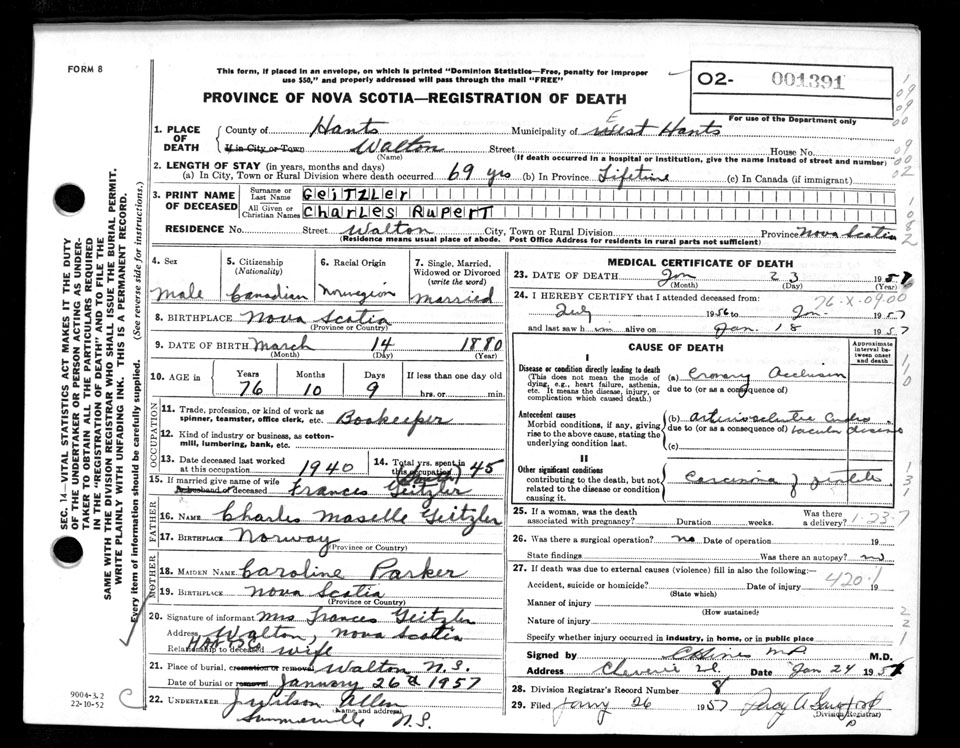 FORM 8
This form, if placed in an envelope, on which is printed "Dominion Statistics—Free, penalty for improper
use $50," and properly addressed will pass through the mail "FREE"
O2- 001391
For use of the Department only
PROVINCE OF NOVA SCOTIA—REGISTRATION OF DEATH
1. PLACE OF DEATH County of Hants Municipality of West Hants
If in City or Town Walton Street House No.
(Name) (If death occurred in a hospital or institution, give the name instead of street and number)
2. LENGTH OF STAY (in years, months and days)
(a) In City, Town or Rural Division where death occurred 69 yrs (b) In Province Lifetime (c) In Canada (if immigrant)
3. PRINT NAME OF DECEASED
Surname or Last Name GEITZLER
All Given or Christian Names CHARLES RUPERT
RESIDENCE No. Street Walton City, Town or Rural Division Province Nova Scotia
(Residence means usual place of abode. Post Office Address for residents in rural parts not sufficient)
4. Sex Male
5. Citizenship (Nationality) Canadian
6. Racial Origin Norwegian
7. Single, Married, Widowed or Divorced (write the word) Married
8. BIRTHPLACE Nova Scotia
(Province or Country)
9. DATE OF BIRTH March 14 1880
(Month) (Day) (Year)
10. AGE in Years 76 Months 10 Days 9 If less than one day old
hrs. or min.
OCCUPATION
11. Trade, profession, or kind of work as
spinner, teamster, office clerk, etc. Bookeeper
12. Kind of industry or business, as cotton-
mill, lumbering, bank, etc.
13. Date deceased last worked
at this occupation 1940
14. Total yrs. spent in
this occupation 45
15. If married give name of wife
or husband of deceased Frances Geitzler
FATHER
16. NAME Charles Maselle Geitzler
17. BIRTHPLACE Norway
(Province or Country)
MOTHER
18. MAIDEN NAME Caroline Parker
19. BIRTHPLACE Nova Scotia
(Province or Country)
20. Signature of informant Mrs Frances Geitzler
Address Walton, Nova Scotia
HANTS
Relationship to deceased wife
21. Place of burial, cremation or removal Walton N.S.
Date of burial or removal January 26th 1957
22. UNDERTAKER J Wilson Allen
(Name and address)
Summerville N.S.
MEDICAL CERTIFICATE OF DEATH
23. DATE OF DEATH Jan 23 1957
(Month) (Day) (Year)
24. I HEREBY CERTIFY that I attended deceased from
26-X-09.00
July 1956 to Jan. 1957
and last saw h im alive on Jan. 18 1957
CAUSE OF DEATH
Approximate interval between onset and death
I
Disease or condition directly leading to death
(This does not mean the mode of
dying, e.g., heart failure, asthenia,
etc. It means the disease, injury, or
complication which caused death.)
(a) Coronary Occlusion
due to (or as a consequence of)
Antecedent causes
Morbid conditions, if any, giving
rise to the above cause, stating the
underlying condition last.
(b) Arteriosclerotic Cardio
due to (or as a consequence of) vascular disease
(c)
II
Other significant conditions
contributing to the death, but not
related to the disease or condition
causing it.
Carcinoma of
25. If a woman, was the death
associated with pregnancy? Duration weeks. Was there a delivery?
1-23-7
26. Was there a surgical operation? no Date of operation 19
State findings Was there an autopsy? no
27. If death was due to external causes (violence) fill in also the following:—
420.1
Accident, suicide or homicide? Date of injury 19
(State which)
Manner of injury
(How sustained)
Nature of injury
Specify whether injury occurred in industry, in home, or in public place
Signed by M.D.
Address Cheverie Date Jan 24 1957
28. Division Registrar's Record Number 8
29. Filed 26 1957
(Division Registrar)
SEC. 14—VITAL STATISTICS ACT MAKES IT THE DUTY
OF THE UNDERTAKER OR PERSON ACTING AS UNDER-
TAKER TO OBTAIN ALL THE PARTICULARS REQUIRED
IN THE "REGISTRATION OF DEATH" AND TO FILE THE
SAME WITH THE DIVISION REGISTRAR WHO SHALL ISSUE THE BURIAL PERMIT.
WRITE PLAINLY WITH UNFADING INK. THIS IS A PERMANENT RECORD.
Every item of information should be carefully supplied. (See reverse side for instructions.)
9004-3.2
22-10-52